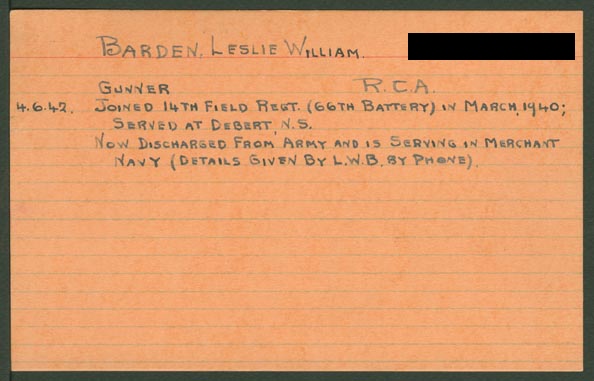 BARDEN, LESLIE WILLIAM.
GUNNER R.C.A.
4.6.42. JOINED 14TH FIELD REGT. (66TH BATTERY) IN MARCH, 1940;
SERVED AT DEBERT, N.S.
NOW DISCHARGED FROM ARMY AND IS SERVING IN MERCHANT
NAVY (DETAILS GIVEN BY L.W.B. BY PHONE).